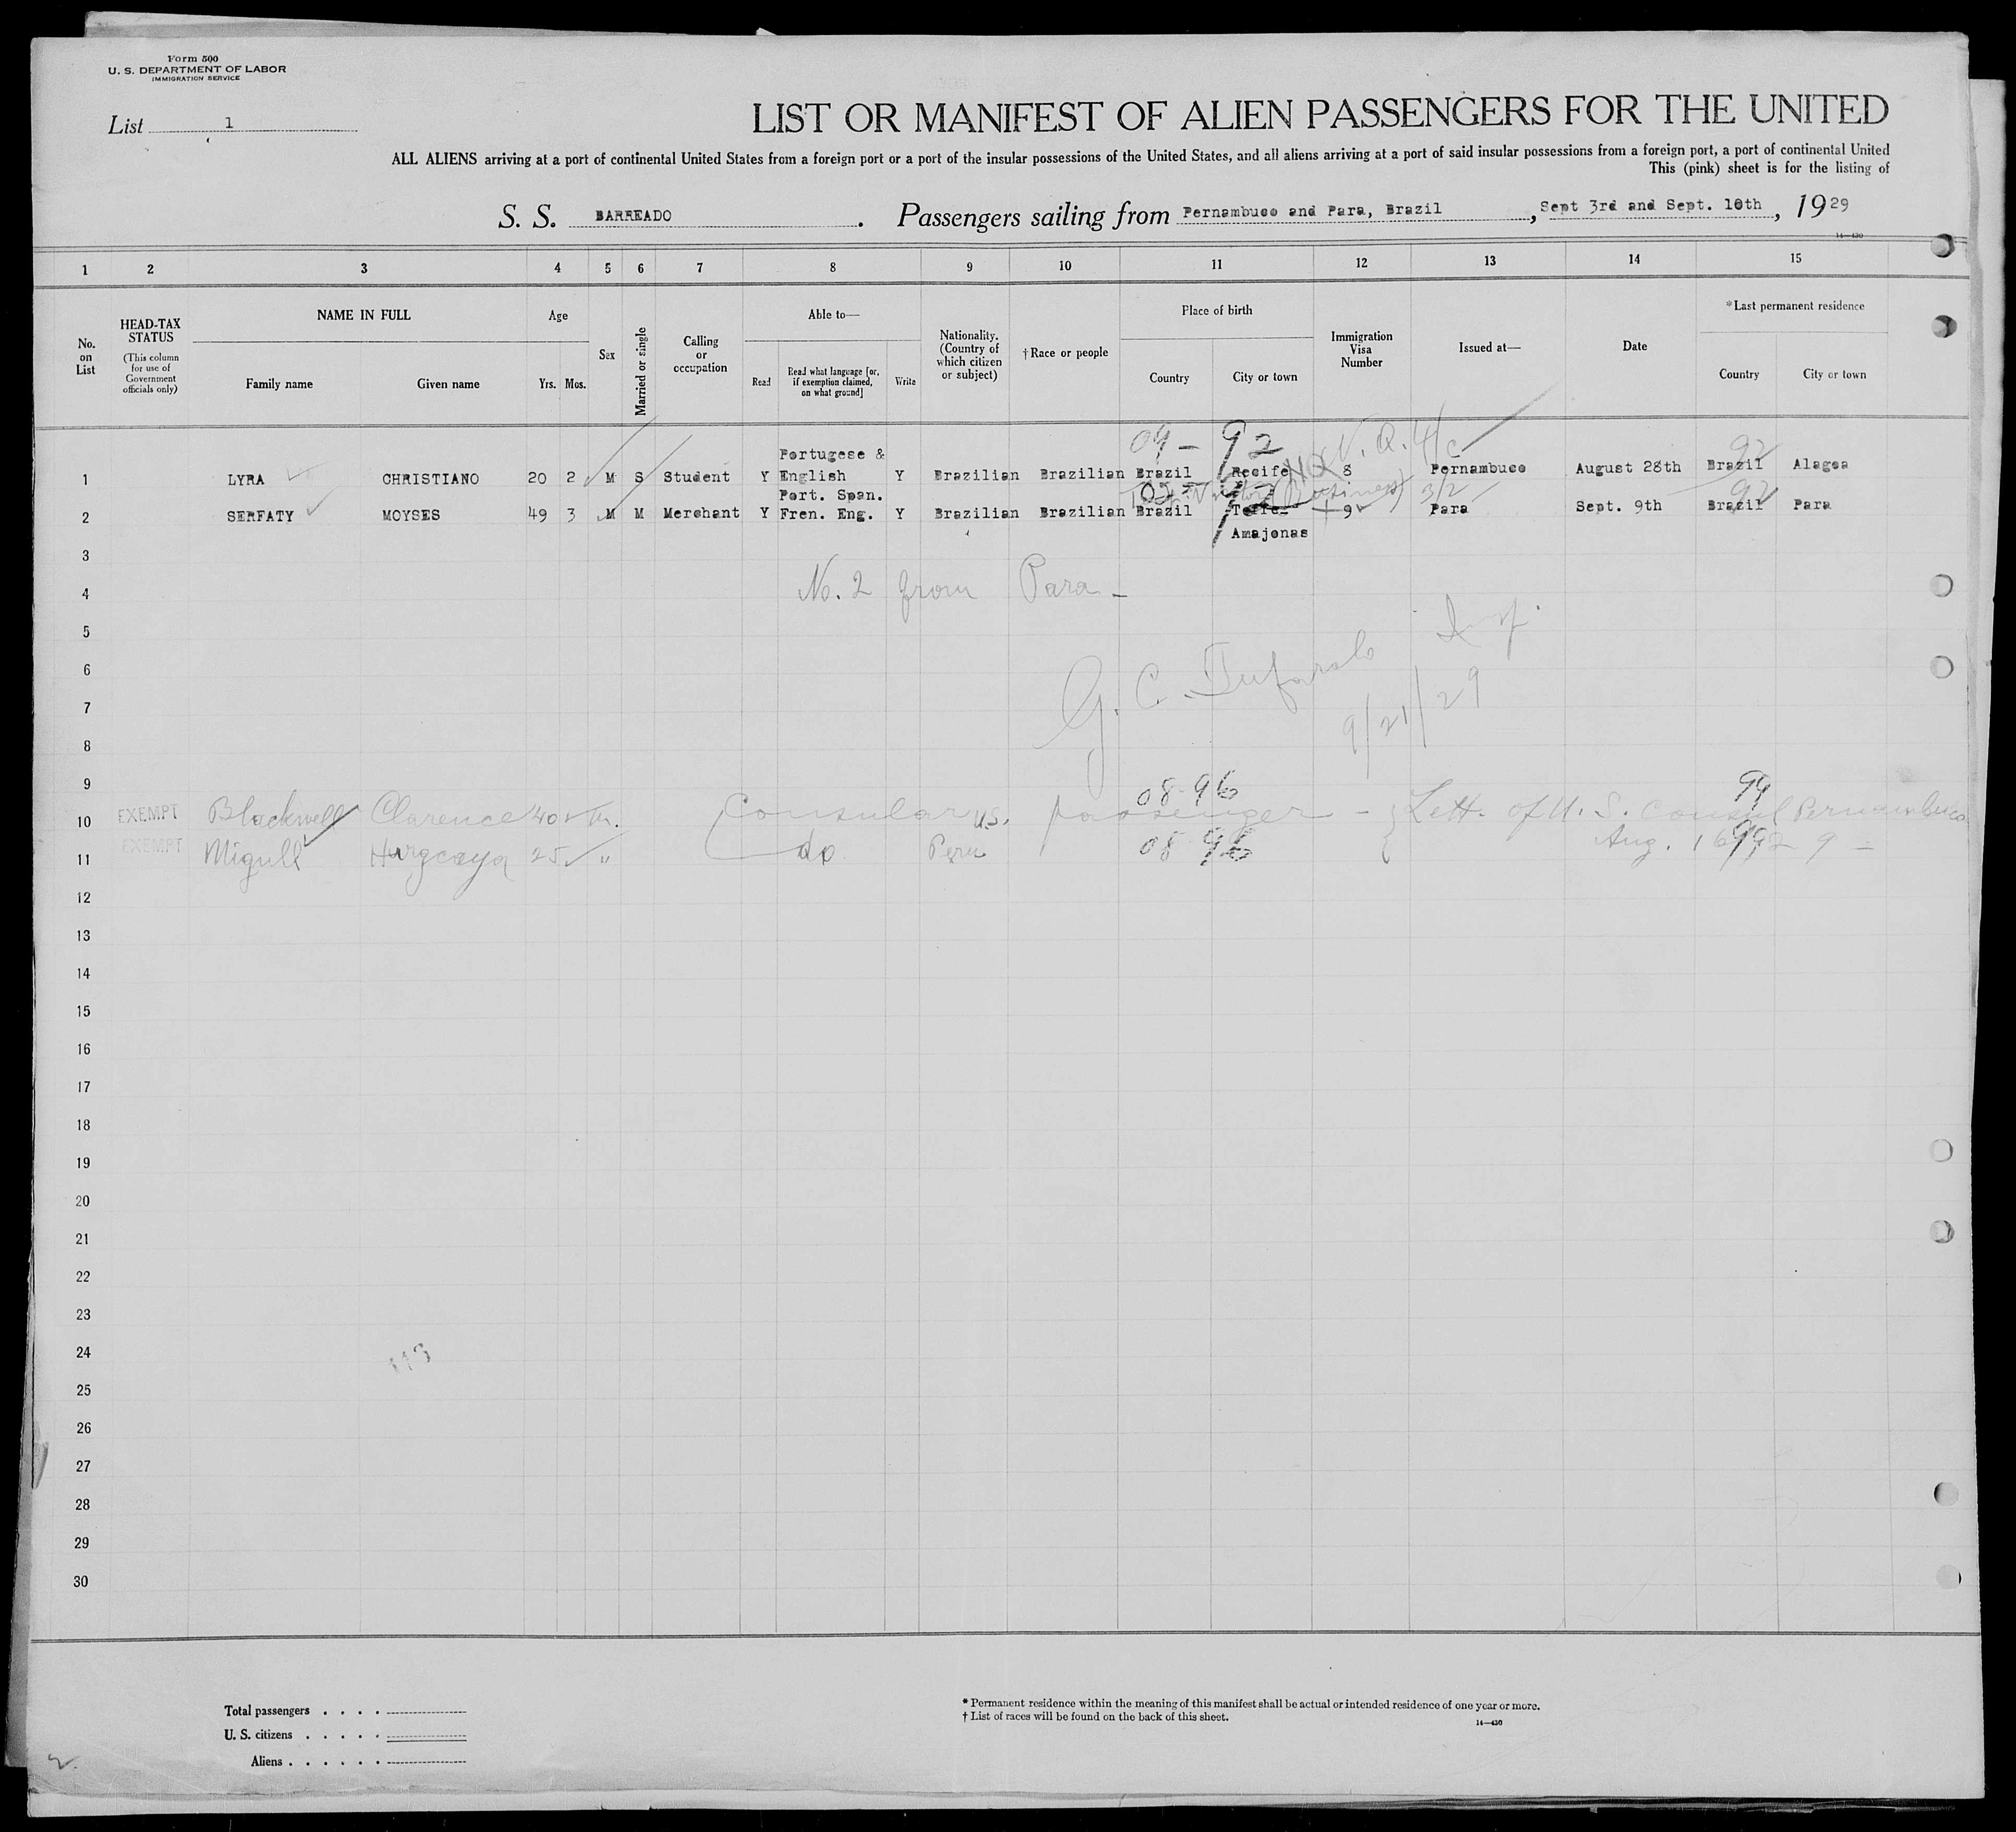 Form 500
U. S. DEPARTMENT OF LABOR
IMMIGRATION SERVICE
List 1
LIST OR MANIFEST OF ALIEN PASSENGERS FOR THE UNITED
ALL ALIENS arriving at a port of continental United States from a foreign port or a port of the insular possessions of the United States, and all aliens arriving at a port of said insular possessions from a foreign port, a port of continental United
This (pink) sheet is for the listing of
S. S. BARREADO . Passengers sailing from Pernambuco and Para, Brazil , Sept 3rd and Sept. 10th , 1929
14—430
1 2 3 4 5 6 7 8 9 10 11 12 13 14 15
No. on List
HEAD-TAX STATUS
(This column for use of Government officials only)
NAME IN FULL
Family name Given name
Age
Yrs. Mos.
Sex
Married or single
Calling or occupation
Able to—
Read
Read what language [or, if exemption claimed, on what ground]
Write
Nationality. (Country of which citizen or subject)
†Race or people
Place of birth
Country City or town
Immigration Visa Number
Issued at—
Date
*Last permanent residence
Country City or town
09 - 92 N. Q. 4/c 92
Portugese &
1 LYRA CHRISTIANO 20 2 M S Student Y English Y Brazilian Brazilian Brazil Recife 8 Pernambuco August 28th Brazil Alagoa
Port. Span. (Business) 3/2 92
2 SERFATY MOYSES 49 3 M M Merchant Y Fren. Eng. Y Brazilian Brazilian Brazil Teffe- 9 Para Sept. 9th Brazil Para
Amajonas
3
4 No. 2 from Para -
5
6 G. C. Insp.
7 9/21/29
8
9 08-96 99
10 EXEMPT Blackwell Clarence 40 m. Consular U.S. passenger - Lett. of U. S. Consul Pernambuco
11 EXEMPT Migull 25 " do Peru 08 96 Aug. 16 1929 - 99
12
13
14
15
16
17
18
19
20
21
22
23
24
113
25
26
27
28
29
30
Total passengers . . . .
U. S. citizens . . . . .
Aliens . . . . . .
* Permanent residence within the meaning of this manifest shall be actual or intended residence of one year or more.
† List of races will be found on the back of this sheet.
14—430
2